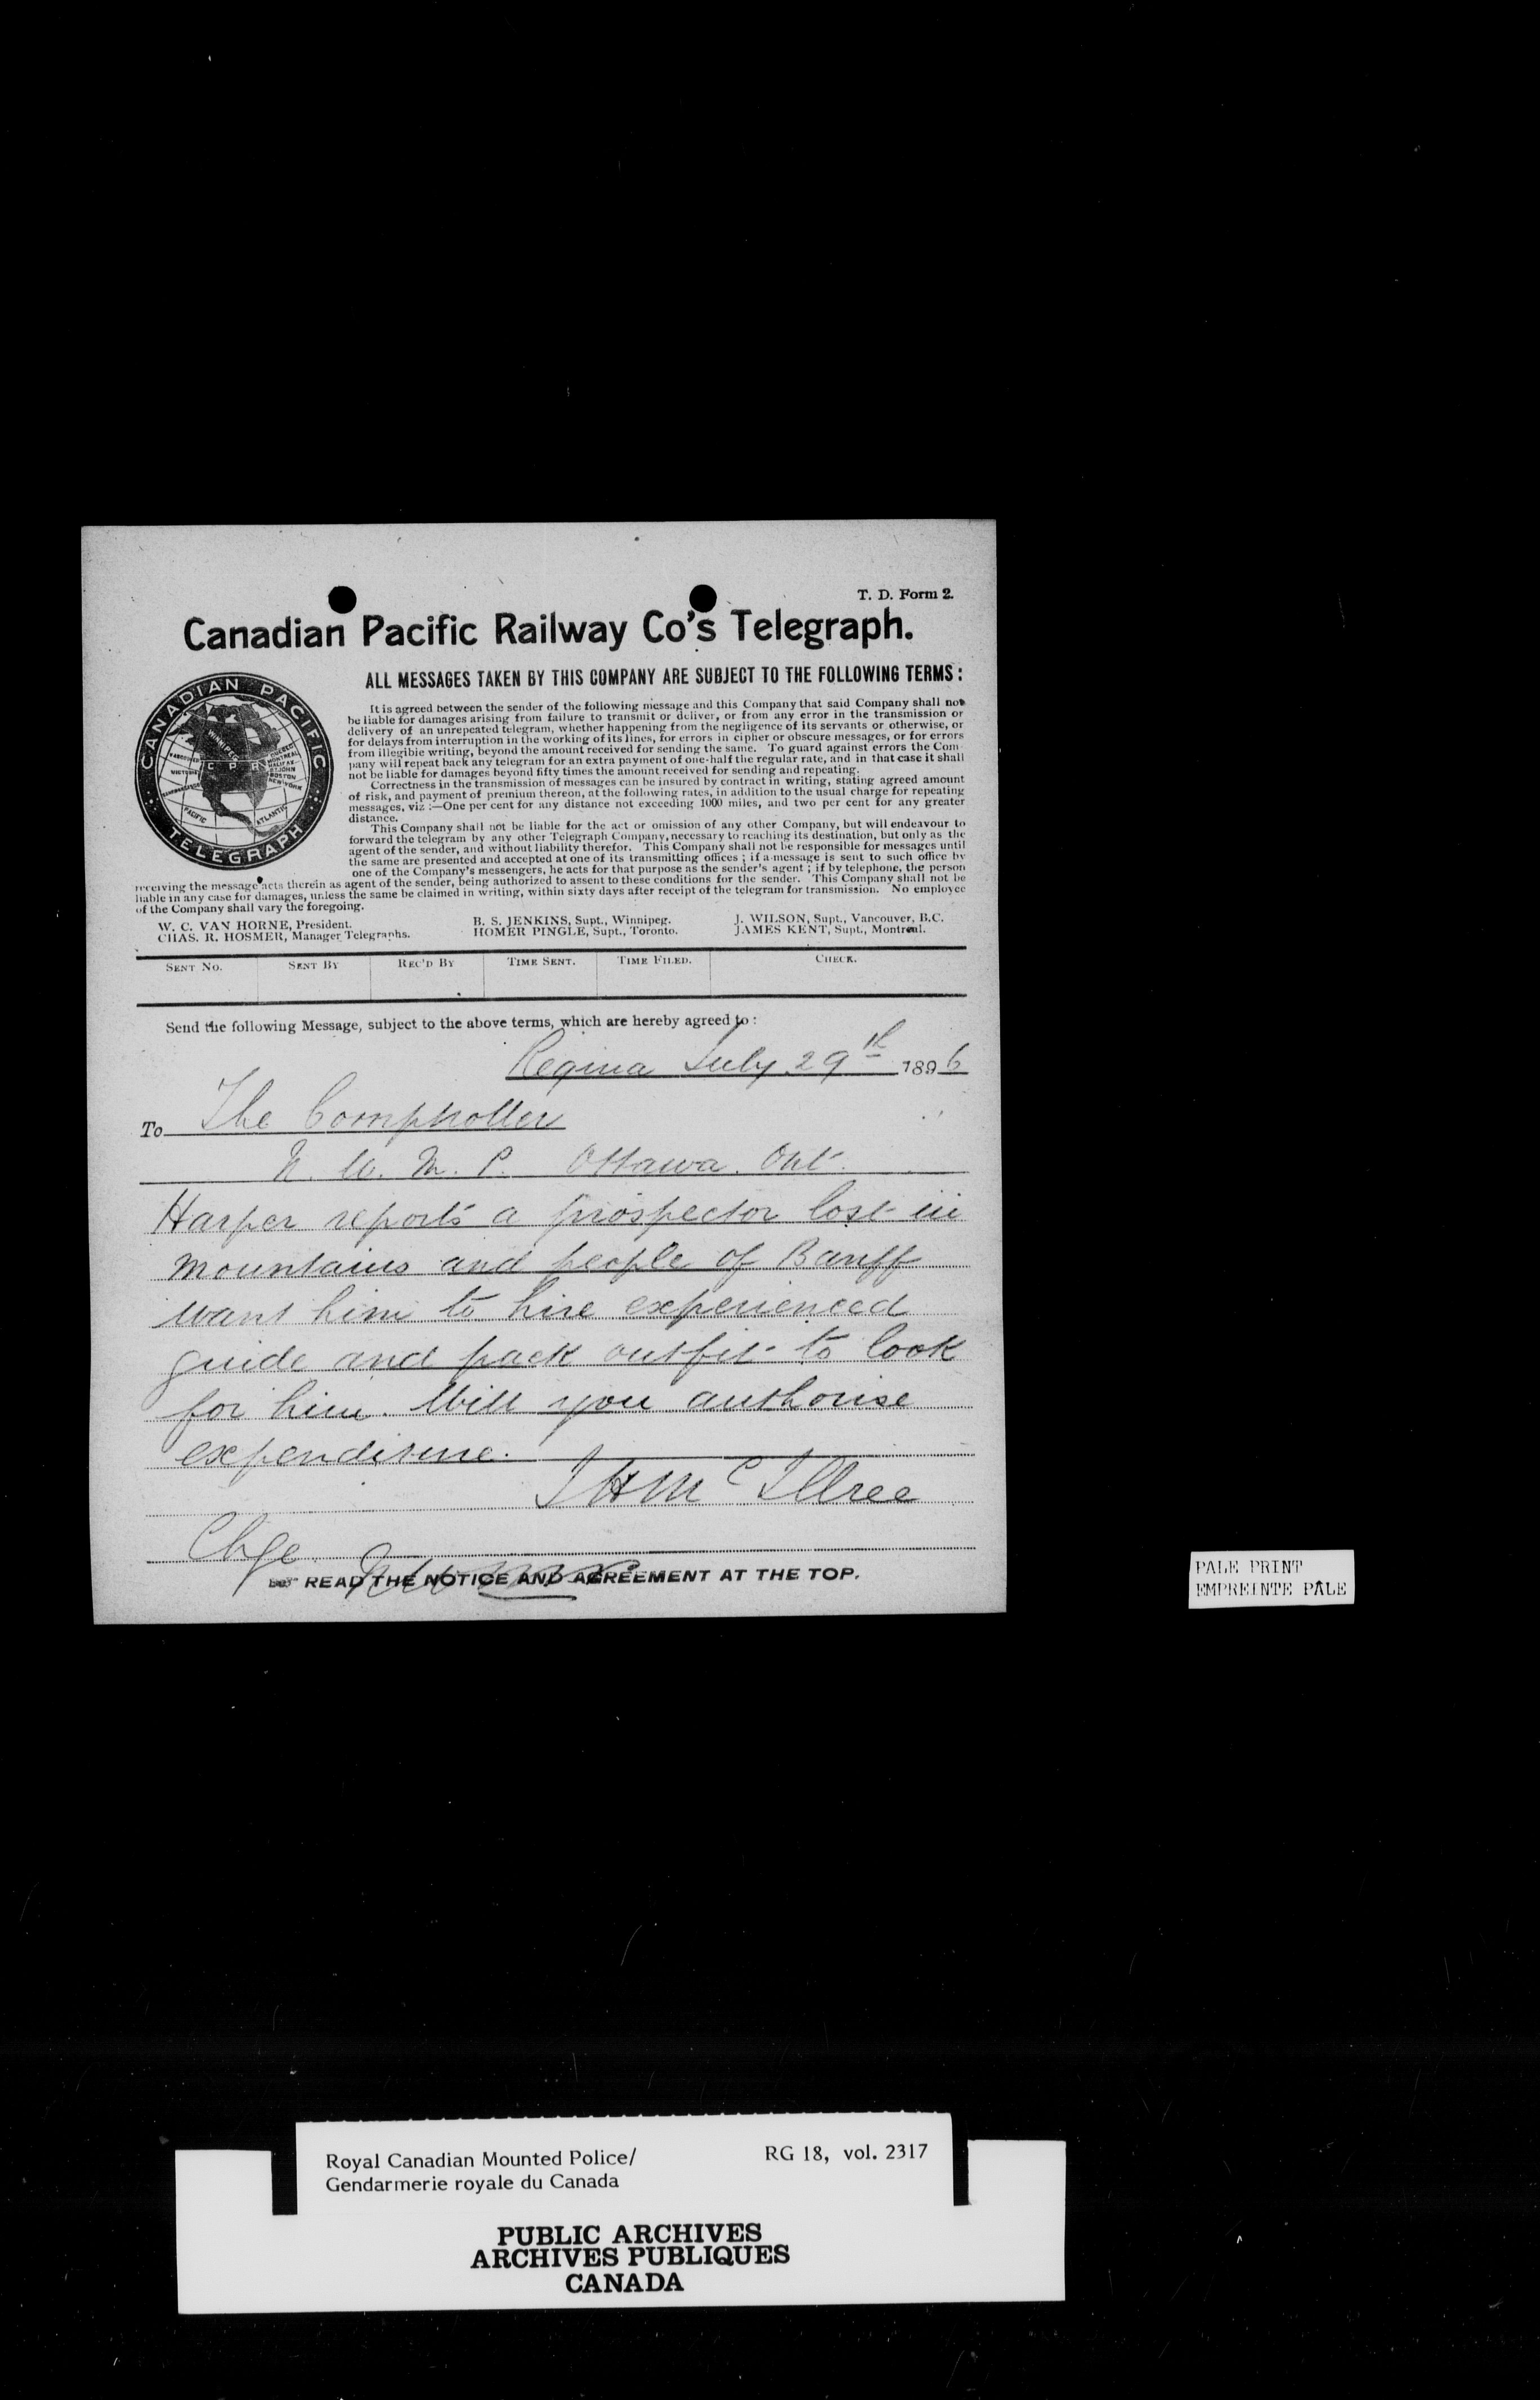 T. D. Form 2.
Canadian Pacific Railway Co's Telegraph.
ALL MESSAGES TAKEN BY THIS COMPANY ARE SUBJECT TO THE FOLLOWING TERMS:
CANADIAN PACIFIC
TELEGRAPH
C P R
PACIFIC
ATLANTIC
It is agreed between the sender of the following message and this Company that said Company shall not
be liable for damages arising from failure to transmit or deliver, or from any error in the transmission or
delivery of an unrepeated telegram, whether happening from the negligence of its servants or otherwise, or
for delays from interruption in the working of its lines, for errors in cipher or obscure messages, or for errors
from illegible writing, beyond the amount received for sending the same. To guard against errors the Com-
pany will repeat back any telegram for an extra payment of one-half the regular rate, and in that case it shall
not be liable for damages beyond fifty times the amount received for sending and repeating.
Correctness in the transmission of messages can be insured by contract in writing, stating agreed amount
of risk, and payment of premium thereon, at the following rates, in addition to the usual charge for repeating
messages, viz :—One per cent for any distance not exceeding 1000 miles, and two per cent for any greater
distance.
This Company shall not be liable for the act or omission of any other Company, but will endeavour to
forward the telegram by any other Telegraph Company, necessary to reaching its destination, but only as the
agent of the sender, and without liability therefor. This Company shall not be responsible for messages until
the same are presented and accepted at one of its transmitting offices ; if a message is sent to such office by
one of the Company's messengers, he acts for that purpose as the sender's agent ; if by telephone, the person
receiving the message acts therein as agent of the sender, being authorized to assent to these conditions for the sender. This Company shall not be
liable in any case for damages, unless the same be claimed in writing, within sixty days after receipt of the telegram for transmission. No employee
of the Company shall vary the foregoing.
W. C. VAN HORNE, President. B. S. JENKINS, Supt., Winnipeg. J. WILSON, Supt., Vancouver, B.C.
CHAS. R. HOSMER, Manager Telegraphs. HOMER PINGLE, Supt., Toronto. JAMES KENT, Supt., Montreal.
SENT NO. SENT BY REC'D BY TIME SENT. TIME FILED. CHECK.
Send the following Message, subject to the above terms, which are hereby agreed to :
Regina July 29th 1896
To The Comptroller
N. W. M. P. Ottawa. Ont.
Harper reports a prospector lost in
mountains and people of Banff
want him to hire experienced
guide and pack outfit to look
for him. Will you authorise
expenditure.
J H McIllree
Chge.
READ THE NOTICE AND AGREEMENT AT THE TOP.
PALE PRINT
EMPREINTE PALE
Royal Canadian Mounted Police/ RG 18, vol. 2317
Gendarmerie royale du Canada
PUBLIC ARCHIVES
ARCHIVES PUBLIQUES
CANADA